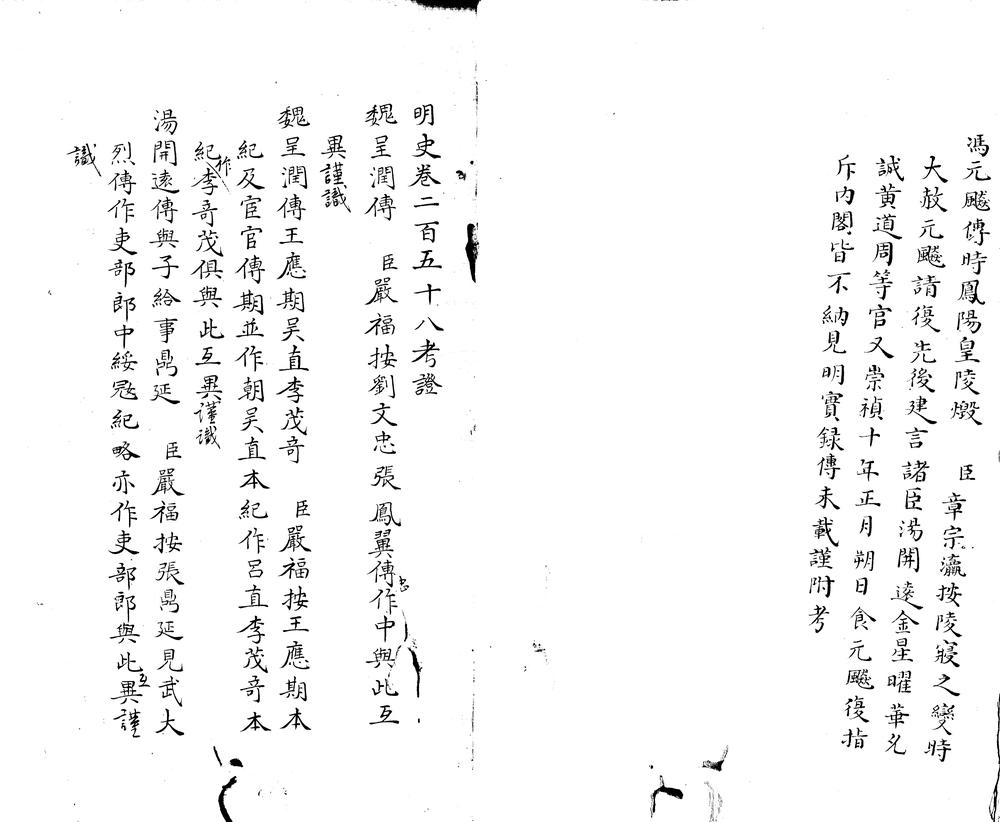 馮元飈傳時鳳陽皇陵燬　臣章宗瀛按陵寢之變時
大赦元飈請復先後建言諸臣湯開遠金星曜華允
誠黄道周等官又崇禎十年正月朔日食元飈復指
斥内閣皆不納見明實録傳未載謹附考
明史卷二百五十八考證
魏呈潤傳　臣嚴福按劉文忠張鳳翼傳作中與此互
異謹識
魏呈潤傳王應期吴直李茂竒　臣嚴福按王應期本
紀及宦官傳期並作朝吴直本紀作吕直李茂竒本
紀作李竒茂俱與此互異謹識
湯開遠傳與子給事鼎延　臣嚴福按張鼎延見武大
烈傳作吏部郎中綏冦紀略亦作吏部郎與此互異謹
識